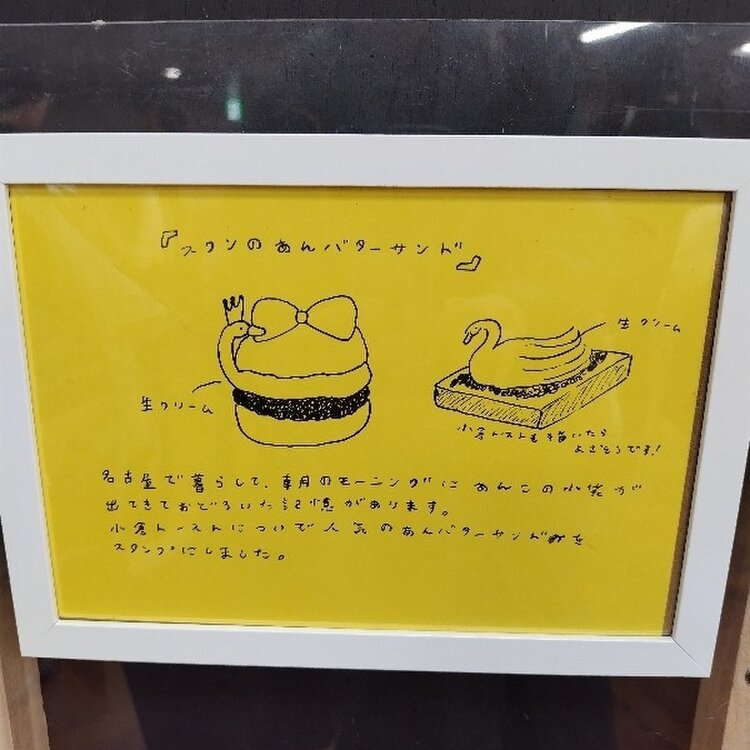 『スワンのあんバターサンド』
生クリーム
生クリーム
小倉トーストも描いたら
よさそうです!
名古屋で暮らして、専用のモーニングに あんこの小袋が
出てきておどろいた記憶があります。
小倉トーストについで人気のあんバターサンドを
スタンプにしました。